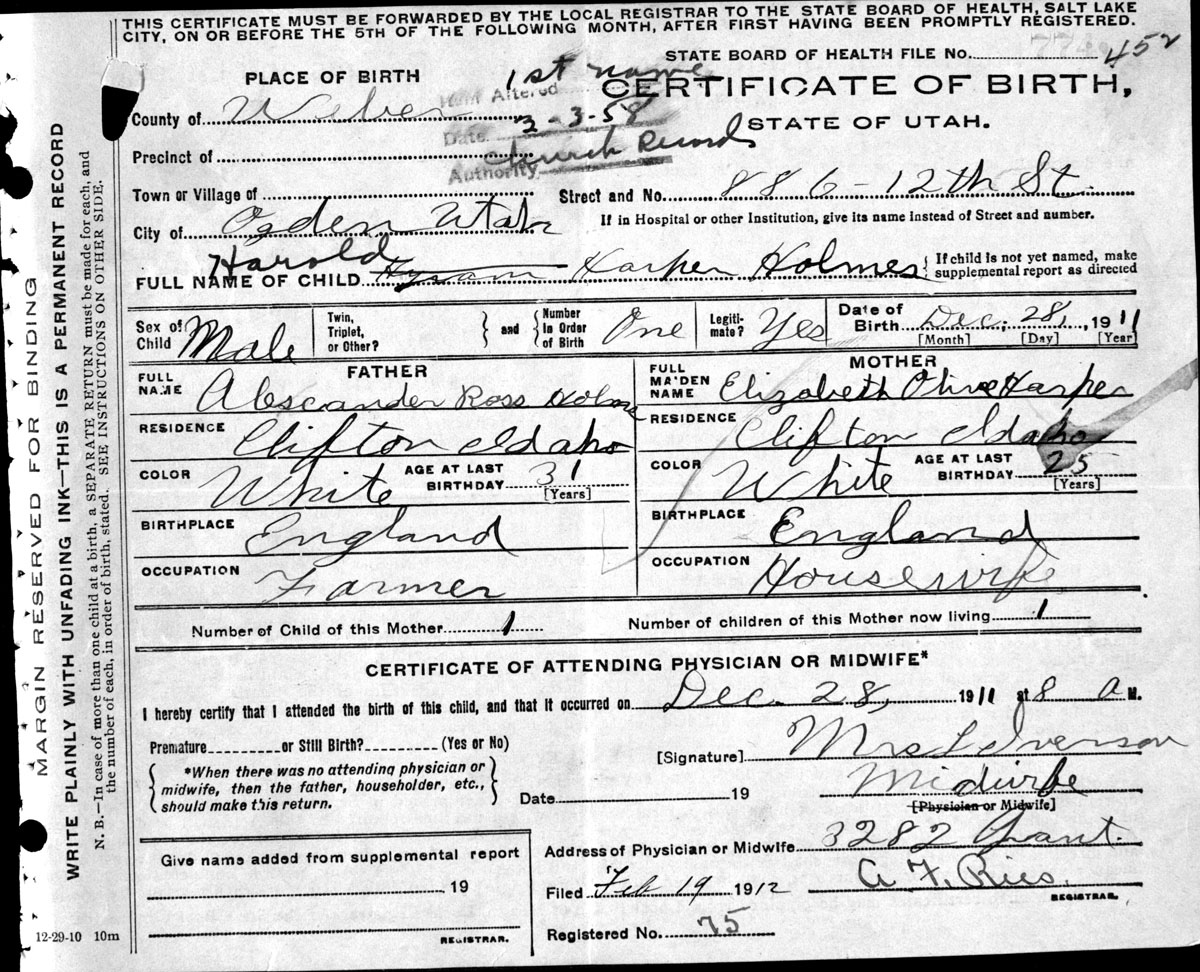 THIS CERTIFICATE MUST BE FORWARDED BY THE LOCAL REGISTRAR TO THE STATE BOARD OF HEALTH, SALT LAKE
CITY, ON OR BEFORE THE 5TH OF THE FOLLOWING MONTH, AFTER FIRST HAVING BEEN PROMPTLY REGISTERED.
STATE BOARD OF HEALTH FILE No. 452
PLACE OF BIRTH
1st name
Altered
CERTIFICATE OF BIRTH,
County of Weber
Date 3-3-58
STATE OF UTAH.
Precinct of
Church Records
Authority
Town or Village of
Street and No. 886-12th St.
City of Ogden Utah
If in Hospital or other Institution, give its name instead of Street and number.
Harold
FULL NAME OF CHILD Hyram Harper Holmes
{ If child is not yet named, make
supplemental report as directed
Sex of Child Male
Twin, Triplet, or Other? } and { Number In Order of Birth One
Legiti-mate? Yes
Date of Birth Dec. 28, 1911
[Month] [Day] [Year]
FATHER
MOTHER
FULL NAME Alescander Ross Holmes
FULL MAIDEN NAME Elizabeth Olive Harper
RESIDENCE Clifton Idaho
RESIDENCE Clifton Idaho
COLOR White AGE AT LAST BIRTHDAY 31 [Years]
COLOR White AGE AT LAST BIRTHDAY 25 [Years]
BIRTHPLACE England
BIRTHPLACE England
OCCUPATION Farmer
OCCUPATION Housewife
Number of Child of this Mother 1
Number of children of this Mother now living 1
CERTIFICATE OF ATTENDING PHYSICIAN OR MIDWIFE*
I hereby certify that I attended the birth of this child, and that it occurred on Dec. 28, 1911 at 8 a M.
Premature or Still Birth? (Yes or No)
[Signature] Mrs L Iverson
{ *When there was no attending physician or
midwife, then the father, householder, etc.,
should make this return. }
Date 19
Midwife
[Physician or Midwife]
Address of Physician or Midwife 3282 Grant.
Give name added from supplemental report
19
REGISTRAR.
Filed Feb 19 1912
A. F. Ries.
REGISTRAR.
Registered No. 75
12-29-10 10m
MARGIN RESERVED FOR BINDING
WRITE PLAINLY WITH UNFADING INK—THIS IS A PERMANENT RECORD
N. B.—In case of more than one child at a birth, a SEPARATE RETURN must be made for each, and
the number of each, in order of birth, stated. SEE INSTRUCTIONS ON OTHER SIDE.